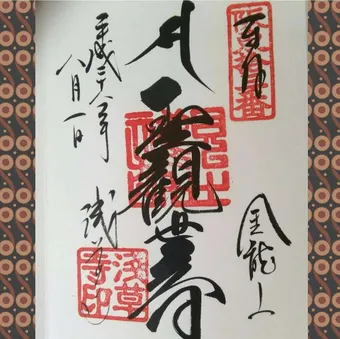 奉拝
金龍山
聖観世音
浅草寺
浅草寺印
平成二十八年
八月一日